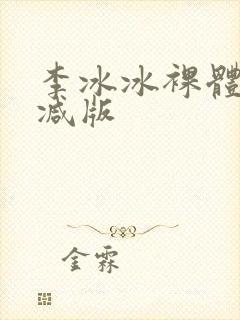 李冰冰裸體
减版
金霖